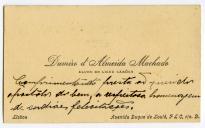 Damiro d'Almeida Machado
ALUNO DO LICEU CAMÕES
Cumprimentando presta ao querido
apostolo do bem, a respeitosa homenagem
de cordiaes felicitações.
Lisboa
Avenida Duque de Loulé, F L C, r/c. D.